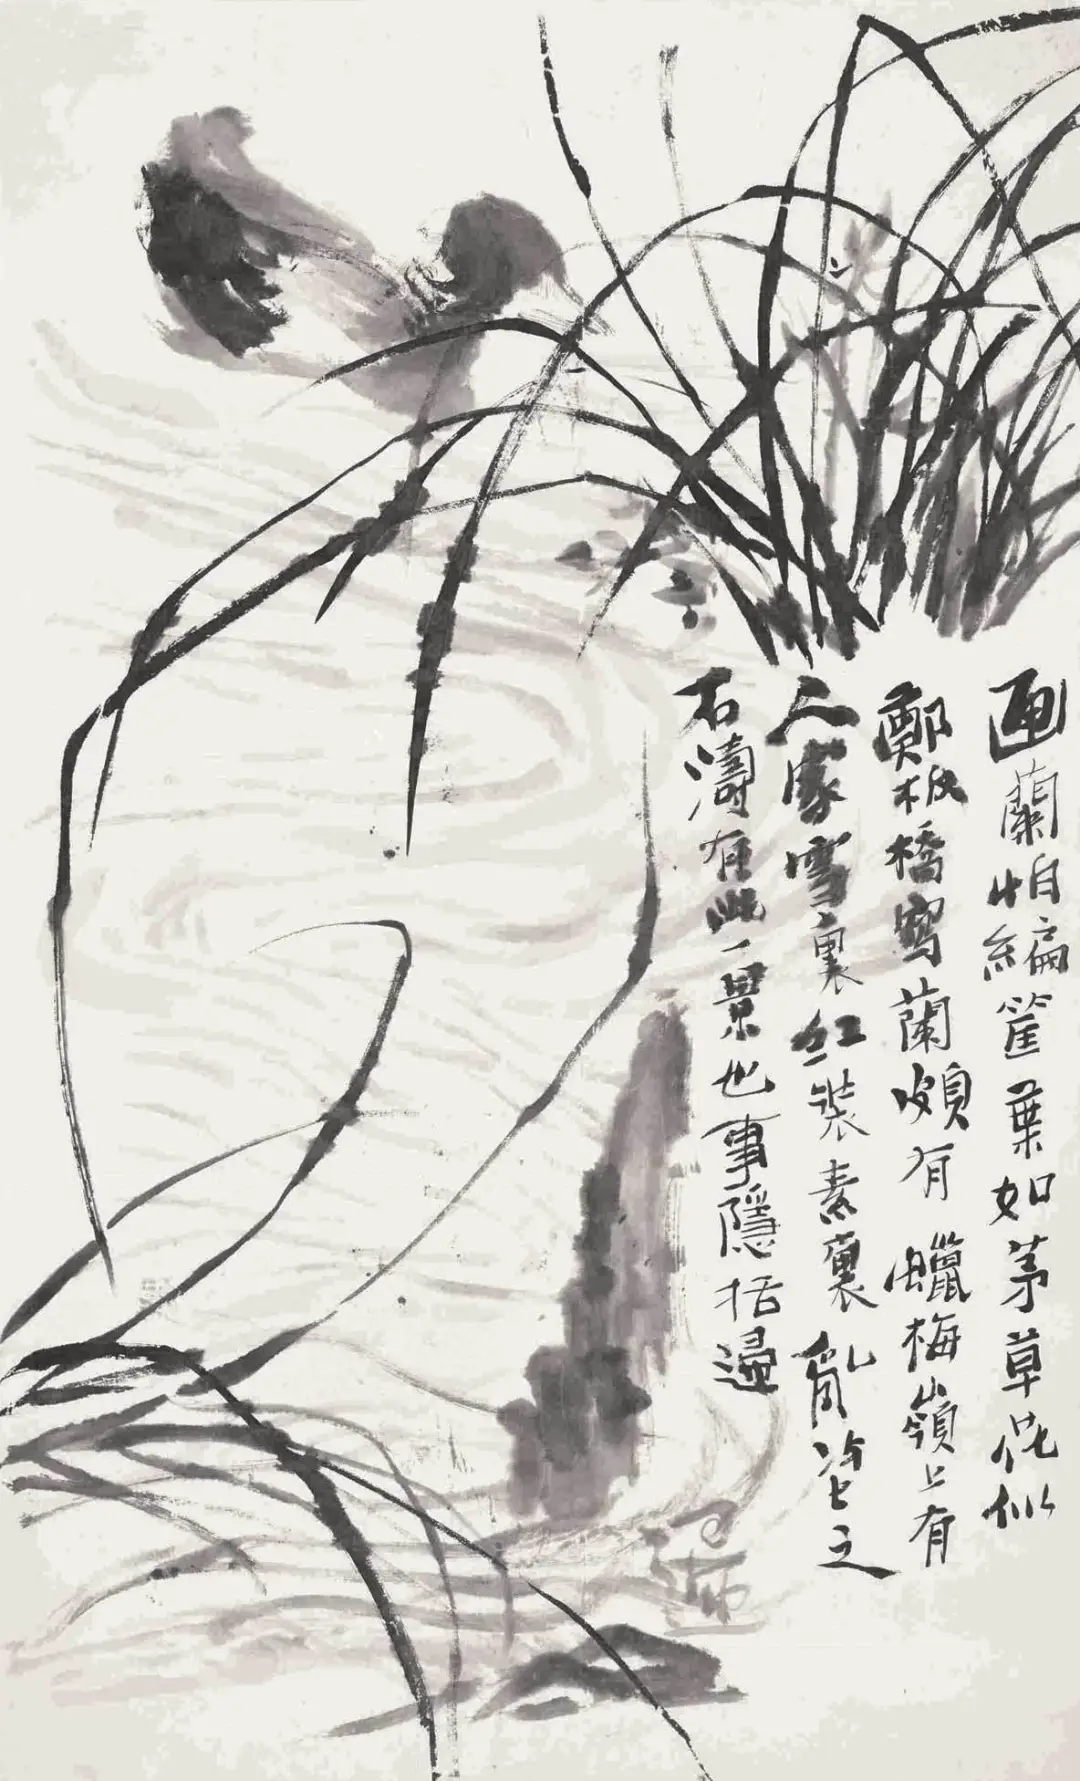 画蘭怕編筐葉如茅草花似
鄭板橋寫蘭頗有蠟梅嶺上有
人家雪裏紅裝素裹亂皆之
石濤有此一景也事隱括